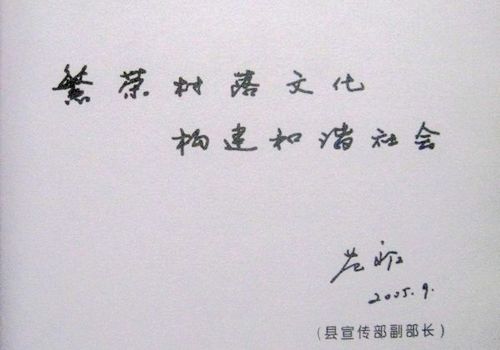 繁荣村落文化
构建和谐社会
2005.9.
(县宣传部副部长)